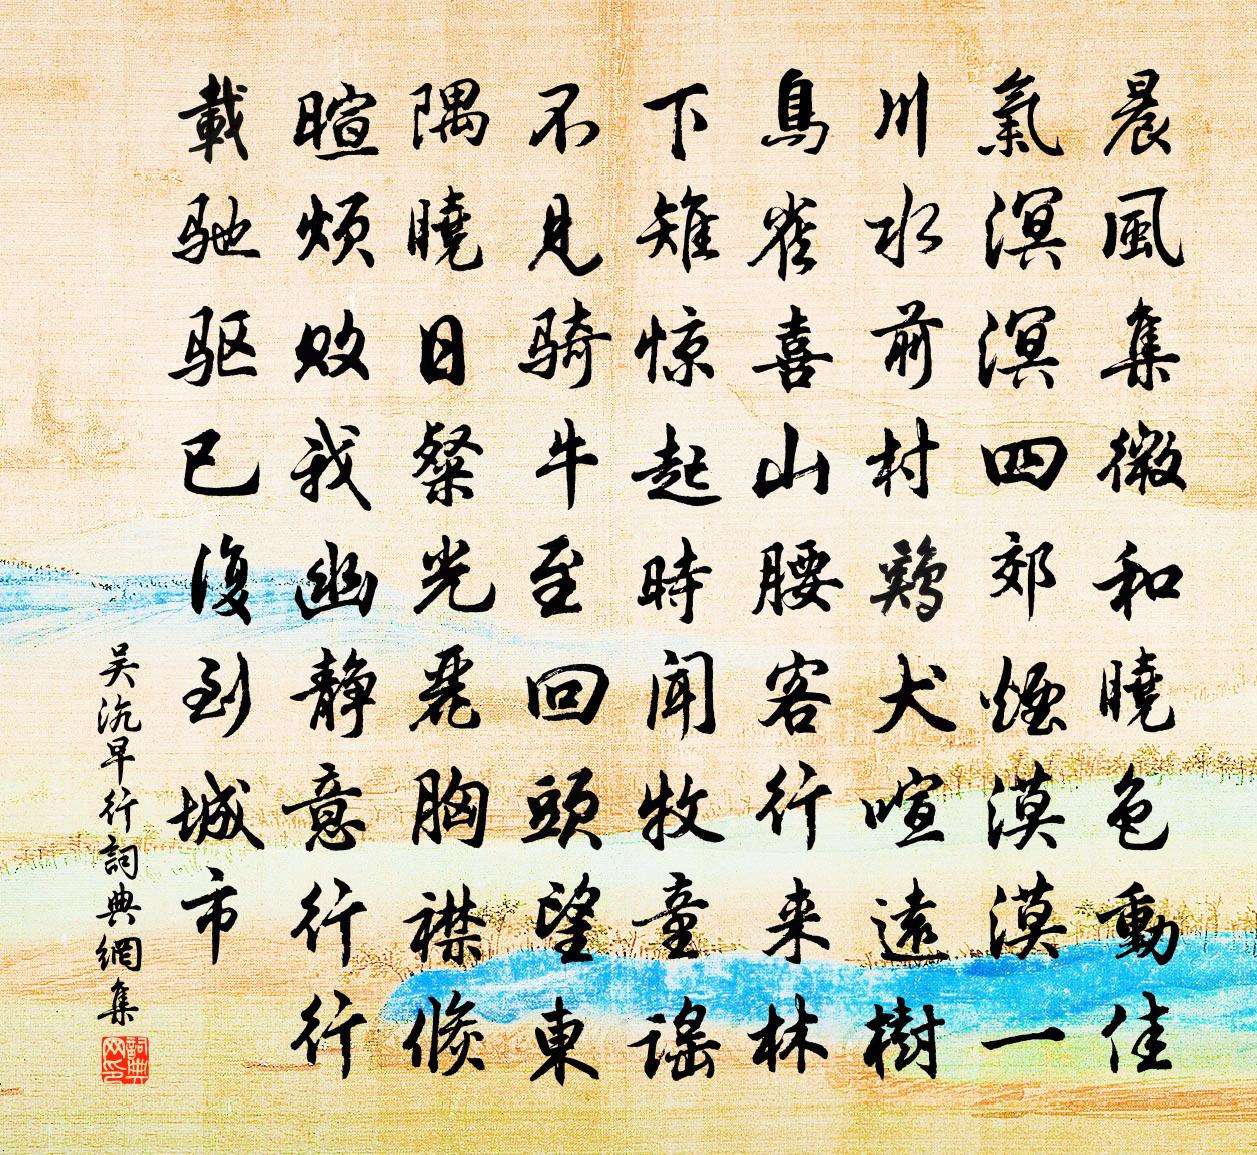 晨風集微和曉色動佳
氣溟溟四郊煙漠漠一
川水前村鶏犬喧遠樹
鳥雀喜山腰客行来林
下雉惊起時聞牧童謡
不見騎牛至回頭望東
隅曉日粲光麗胸襟倏
暄煩敗我幽静意行行
載馳驱已復到城市
吴沆早行詞典網集